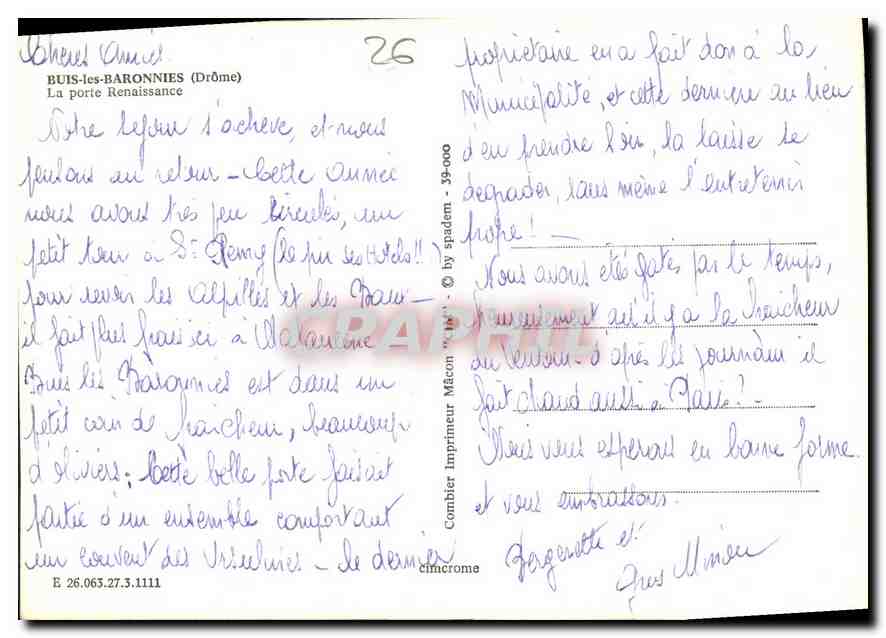 Chères Amies
26
BUIS-les-BARONNIES (Drôme)
La porte Renaissance
Notre séjour s'achève, et nous
pensons au retour - Cette année
nous avons très peu circulés, un
petit tour à St Remy (le pin ses Hotels!!)
pour revoir les Alpilles et les Baux -
il fait plus frais ici à Malaucène -
Buis les Baronnies est dans un
petit coin de fraicheur, beaucoup
d'oliviers; Cette belle porte faisait
partie d'un ensemble comportant
un couvent des Ursulines - le dernier
E 26.063.27.3.1111
cimcrome
Combier Imprimeur Mâcon - © by spadem - 39-000
CPAPHIL
propriétaire en a fait don à la
Municipalité, et cette dernière au lieu
d'en prendre soin, la laisse se
dégrader, sans même l'entretenir
propre! -
Nous avons étés gatés par le temps,
heureusement qu'il y a la fraicheur
du d'après les journaux il
fait chaud aussi à Paris? -
Nous vous espérons en bonne forme
et vous embrassons.
et
Minou